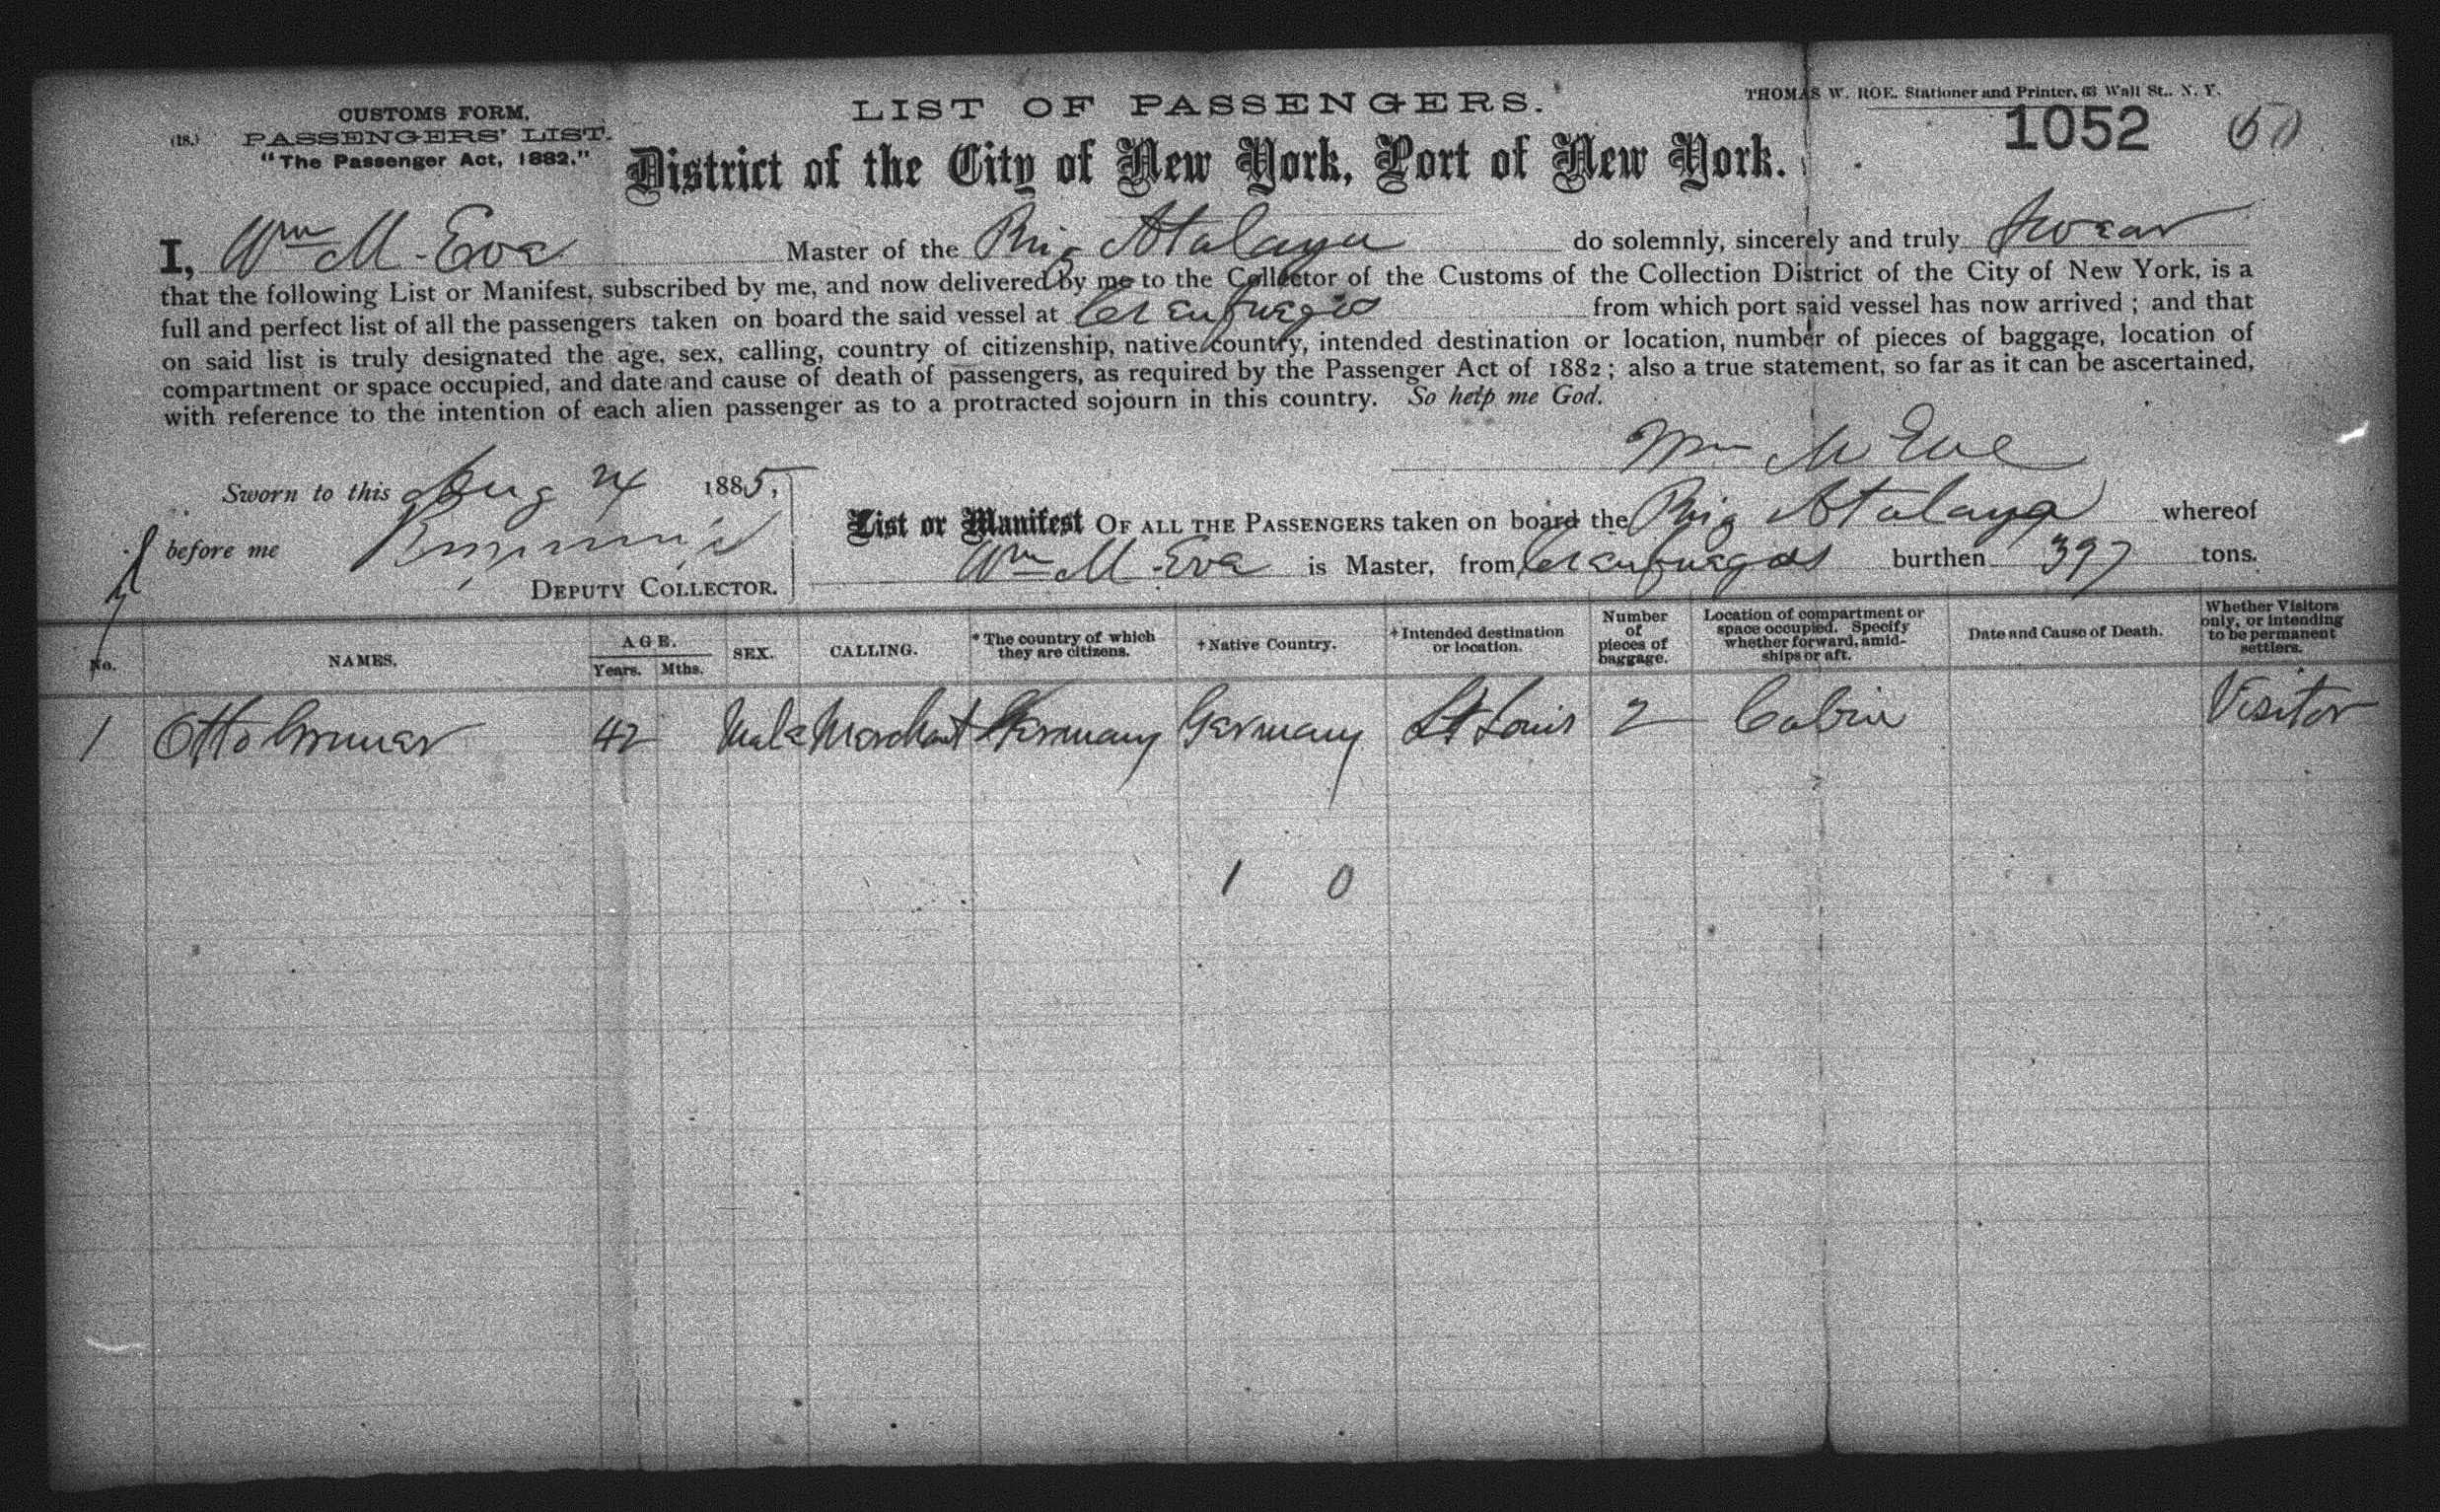 CUSTOMS FORM,
(18.) PASSENGERS' LIST.
"The Passenger Act, 1882."
LIST OF PASSENGERS.
THOMAS W. ROE. Stationer and Printer, 63 Wall St., N. Y.
1052
District of the City of New York, Port of New York.
I, Wm M. Eve Master of the Brig Atalaya do solemnly, sincerely and truly swear
that the following List or Manifest, subscribed by me, and now delivered by me to the Collector of the Customs of the Collection District of the City of New York, is a
full and perfect list of all the passengers taken on board the said vessel at Cienfuegos from which port said vessel has now arrived ; and that
on said list is truly designated the age, sex, calling, country of citizenship, native country, intended destination or location, number of pieces of baggage, location of
compartment or space occupied, and date and cause of death of passengers, as required by the Passenger Act of 1882 ; also a true statement, so far as it can be ascertained,
with reference to the intention of each alien passenger as to a protracted sojourn in this country. So help me God.
Wm M Eve
Sworn to this Aug 24 1885,
before me
DEPUTY COLLECTOR.
List or Manifest OF ALL THE PASSENGERS taken on board the Brig Atalaya whereof
Wm M. Eve is Master, from Cienfuegos burthen 397 tons.
No. NAMES. AGE. Years. Mths. SEX. CALLING. * The country of which they are citizens. + Native Country. + Intended destination or location. Number of pieces of baggage. Location of compartment or space occupied. Specify whether forward, amidships or aft. Date and Cause of Death. Whether Visitors only, or intending to be permanent settlers.
1 Otto 42 Male Merchant Germany Germany St Louis 2 Cabin Visitor
1 0